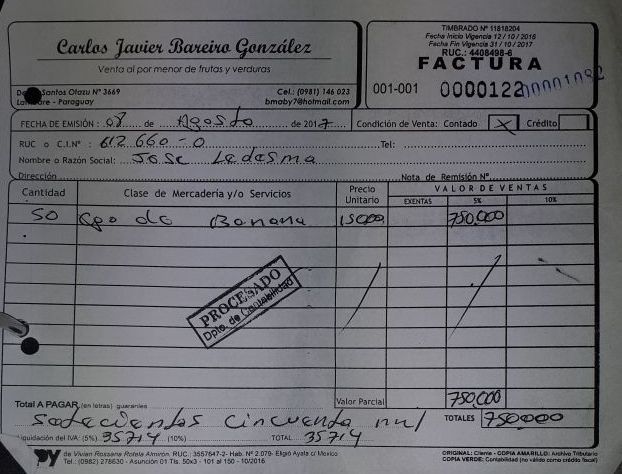 Carlos Javier Bareiro González
Venta al por menor de frutas y verduras
Santos Otazu Nº 3669
Cel.: (0981) 146 023
- Paraguay
bmaby7@hotmail.com
TIMBRADO Nº 11818204
Fecha Inicio Vigencia 12 / 10 / 2016
Fecha Fin Vigencia 31 / 10 / 2017
RUC.: 4408498-6
FACTURA
001-001 0000122
FECHA DE EMISIÓN : 08 de Agosto de 2017 Condición de Venta: Contado X Crédito
RUC o C.I.Nº : 612 660 - 0 Tel:
Nombre o Razón Social: Jose Ledesma
Dirección Nota de Remisión Nº
Cantidad Clase de Mercadería y/o Servicios Precio Unitario VALOR DE VENTAS
EXENTAS 5% 10%
50 de Banana 15000 750,000
PROCESADO
Dpto. de Contabilidad
Total A PAGAR (en letras) guaraníes Valor Parcial 750,000
setecientos cincuenta mil TOTALES 750000
Liquidación del IVA: (5%) 35714 (10%) TOTAL 35714
de Vivian Rossana Rotela Almirón. RUC.: 3557647-2- Hab. Nº 2.079- Eligio Ayala c/ Mexico
Tel.: (0982) 278630 - Asunción 01 Tls. 50x3 - 101 al 150 - 10/2016
ORIGINAL: Cliente - COPIA AMARILLO: Archivo Tributario
COPIA VERDE: Contabilidad (no válido como crédito fiscal)